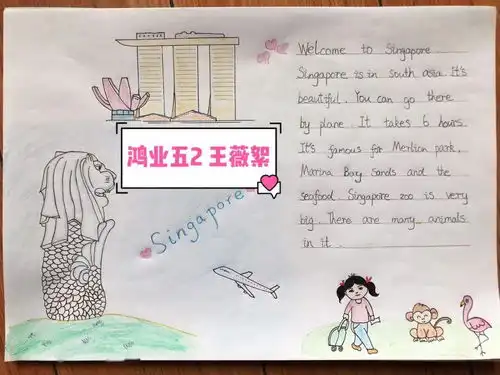 Welcome to Singapore
Singapore is in south asia. It's
beautiful. You can go there
by plane. It takes 6 hours
It's famous for Merlion park,
Marina Bay Sands and the
seafood. Singapore zoo is very
big. There are many animals
in it.
鸿业五2 王薇絮
Singapore